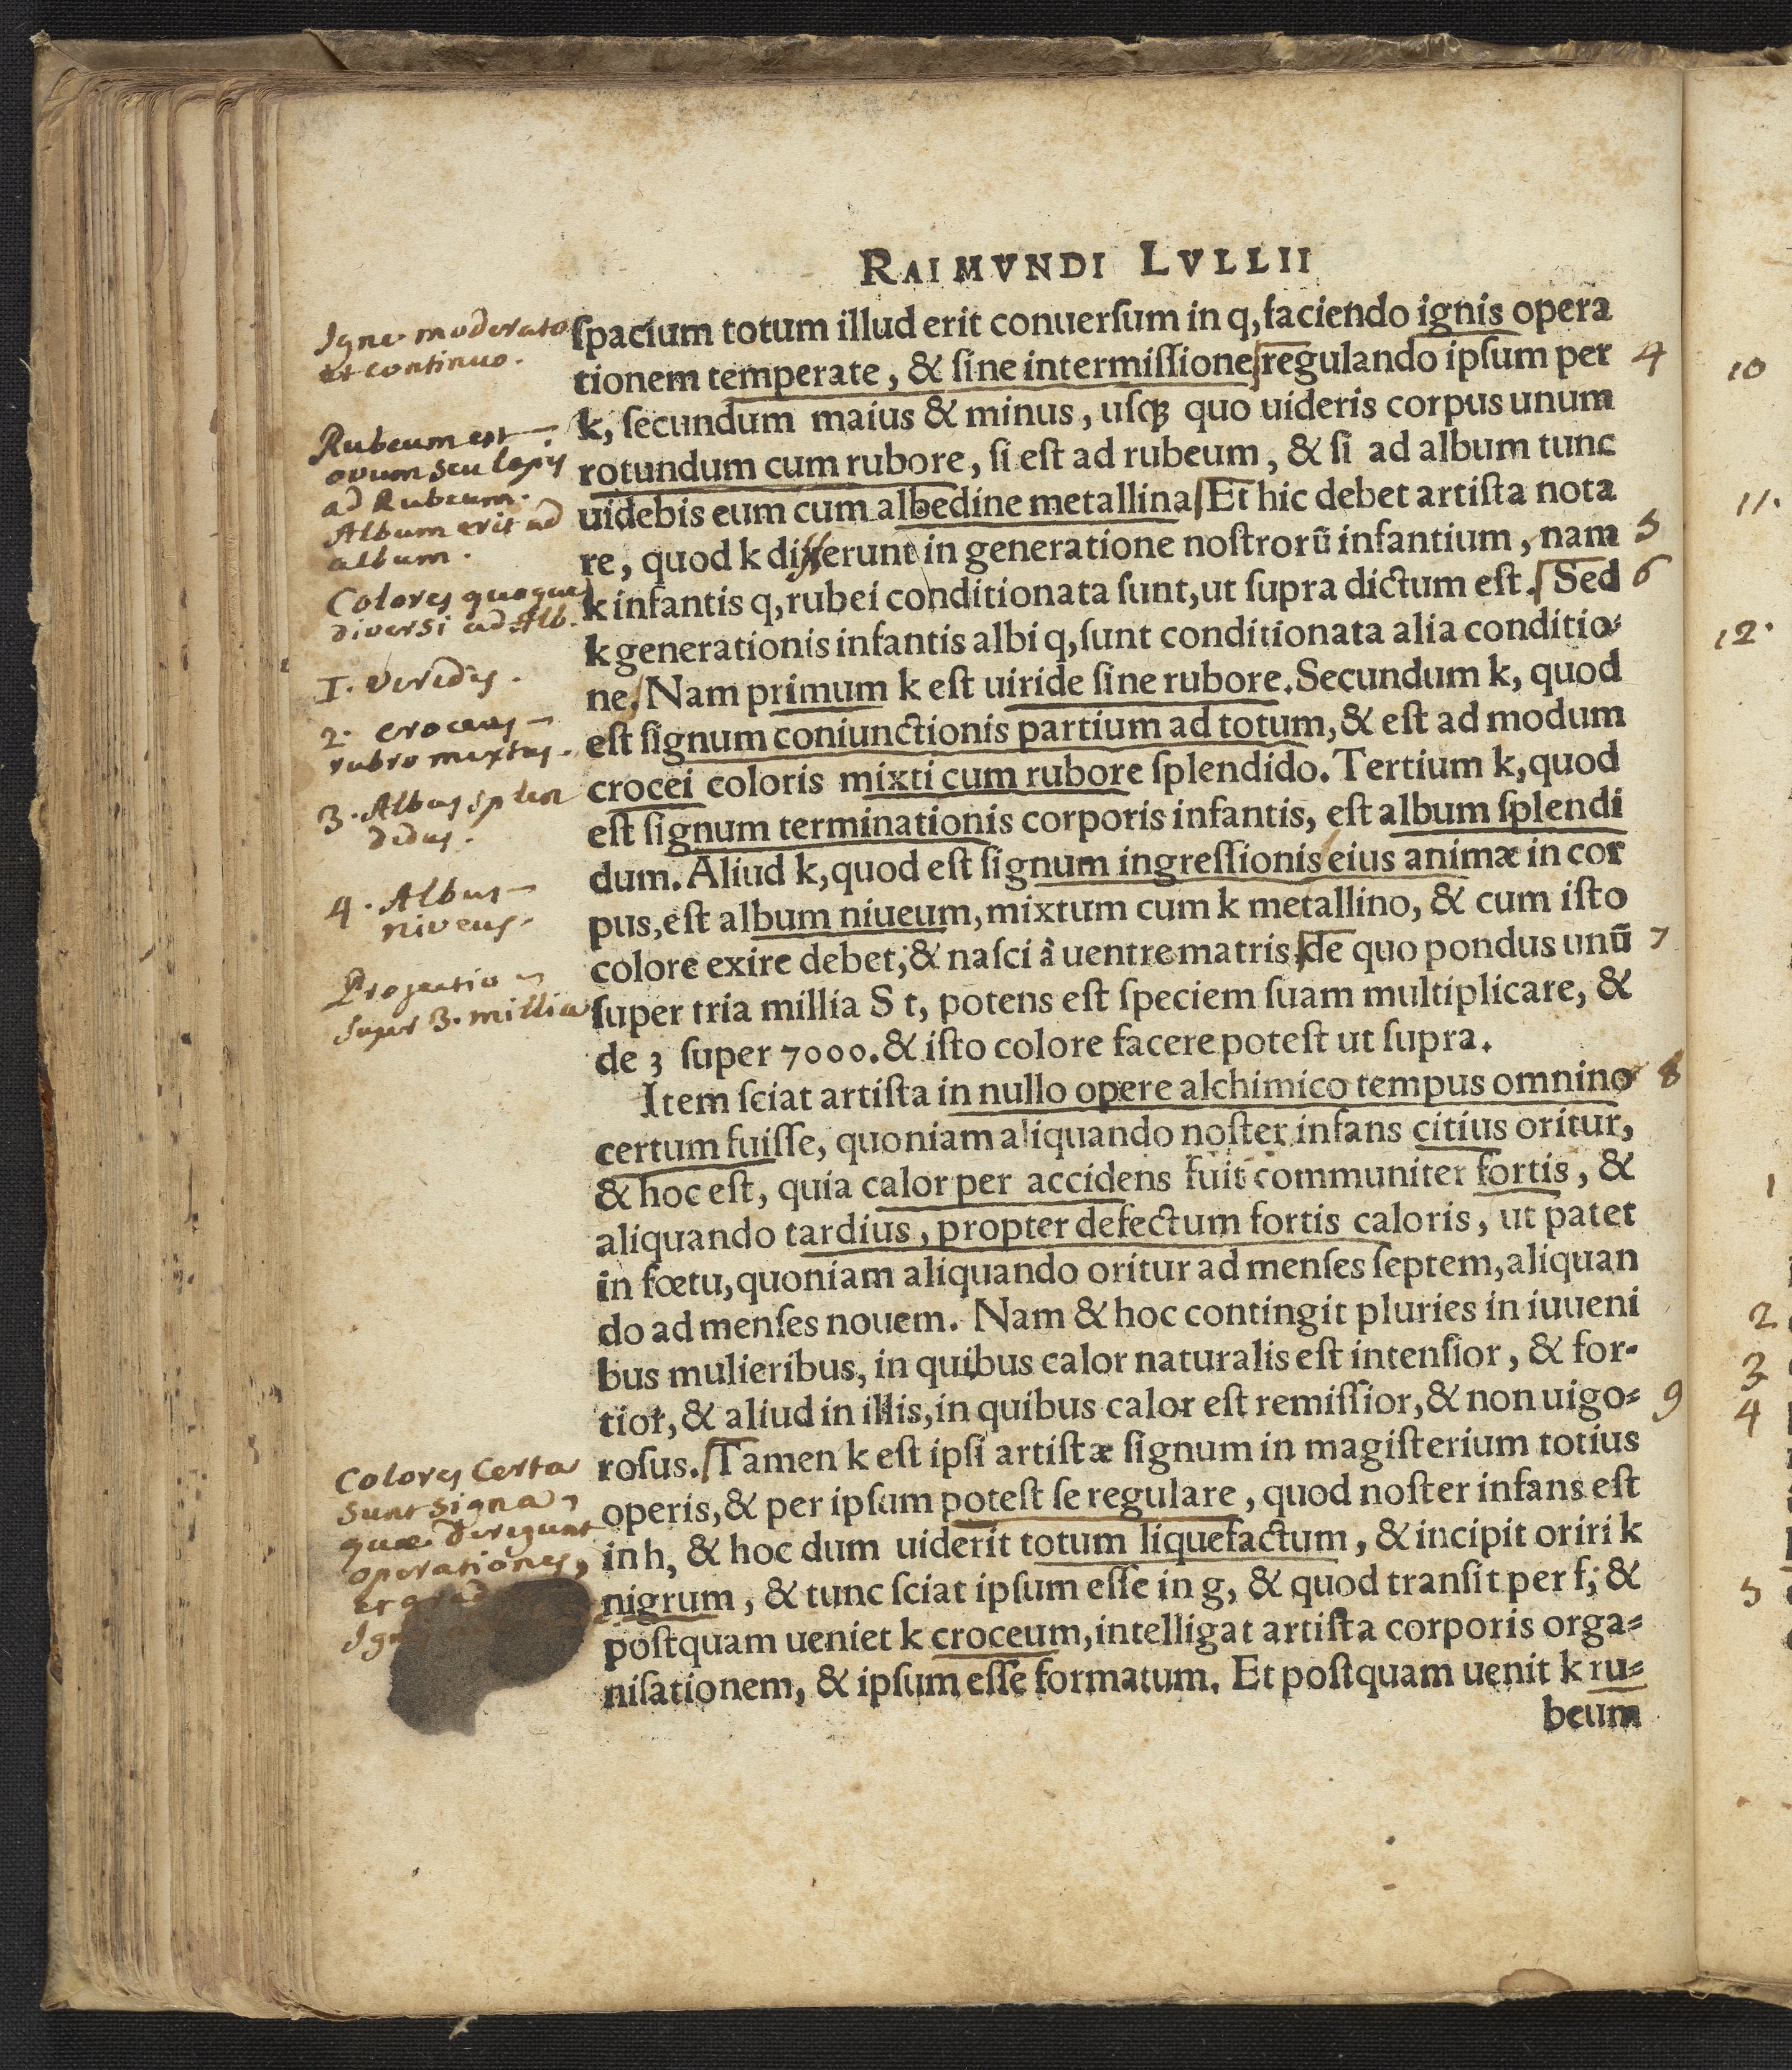 RAIMVNDI LVLLII
Igne moderato
et continuo.
Rubeum est
ovum seu lapis
ad Rubeum.
Album erit ad
album.
Colores quoque
diversi ad Alb.
1. Viridis.
2. croceus
rubro mixtus.
3. Albus splen
didus.
4. Albus
niveus.
Projectio
super 3. millia
Colores Certa
sunt signa
quae dirigunt
operationes,
et
ſpacium totum illud erit conuerſum in q, faciendo ignis opera
tionem temperate, & ſine intermiſſione regulando ipſum per
k, ſecundum maius & minus, uſq; quo uideris corpus unum
rotundum cum rubore, ſi eſt ad rubeum, & ſi ad album tunc
uidebis eum cum albedine metallina. Et hic debet artiſta nota
re, quod k differunt in generatione noſtrorũ infantium, nam
k infantis q, rubei conditionata ſunt, ut ſupra dictum eſt. Sed
k generationis infantis albi q, ſunt conditionata alia conditio-
ne. Nam primum k eſt uiride ſine rubore. Secundum k, quod
eſt ſignum coniunctionis partium ad totum, & eſt ad modum
crocei coloris mixti cum rubore ſplendido. Tertium k, quod
eſt ſignum terminationis corporis infantis, eſt album ſplendi
dum. Aliud k, quod eſt ſignum ingreſſionis eius animæ in cor
pus, eſt album niueum, mixtum cum k metallino, & cum iſto
colore exire debet, & naſci à uentre matris, de quo pondus unũ
ſuper tria millia S t, potens eſt ſpeciem ſuam multiplicare, &
de 3 ſuper 7000. & iſto colore facere poteſt ut ſupra.
Item ſciat artiſta in nullo opere alchimico tempus omnino
certum fuiſſe, quoniam aliquando noſter infans citius oritur,
& hoc eſt, quia calor per accidens fuit communiter fortis, &
aliquando tardius, propter defectum fortis caloris, ut patet
in fœtu, quoniam aliquando oritur ad menſes ſeptem, aliquan
do ad menſes nouem. Nam & hoc contingit pluries in iuueni
bus mulieribus, in quibus calor naturalis eſt intenſior, & for-
tior, & aliud in illis, in quibus calor eſt remiſſior, & non uigo-
roſus. Tamen k eſt ipſi artiſtæ ſignum in magiſterium totius
operis, & per ipſum poteſt ſe regulare, quod noſter infans eſt
in h, & hoc dum uiderit totum liquefactum, & incipit oriri k
nigrum, & tunc ſciat ipſum eſſe in g, & quod tranſit per f, &
poſtquam ueniet k croceum, intelligat artiſta corporis orga-
niſationem, & ipſum eſſe formatum. Et poſtquam uenit k ru-
beum
4
5
6
7
8
9
10
11.
12.
1
2
3
4
5